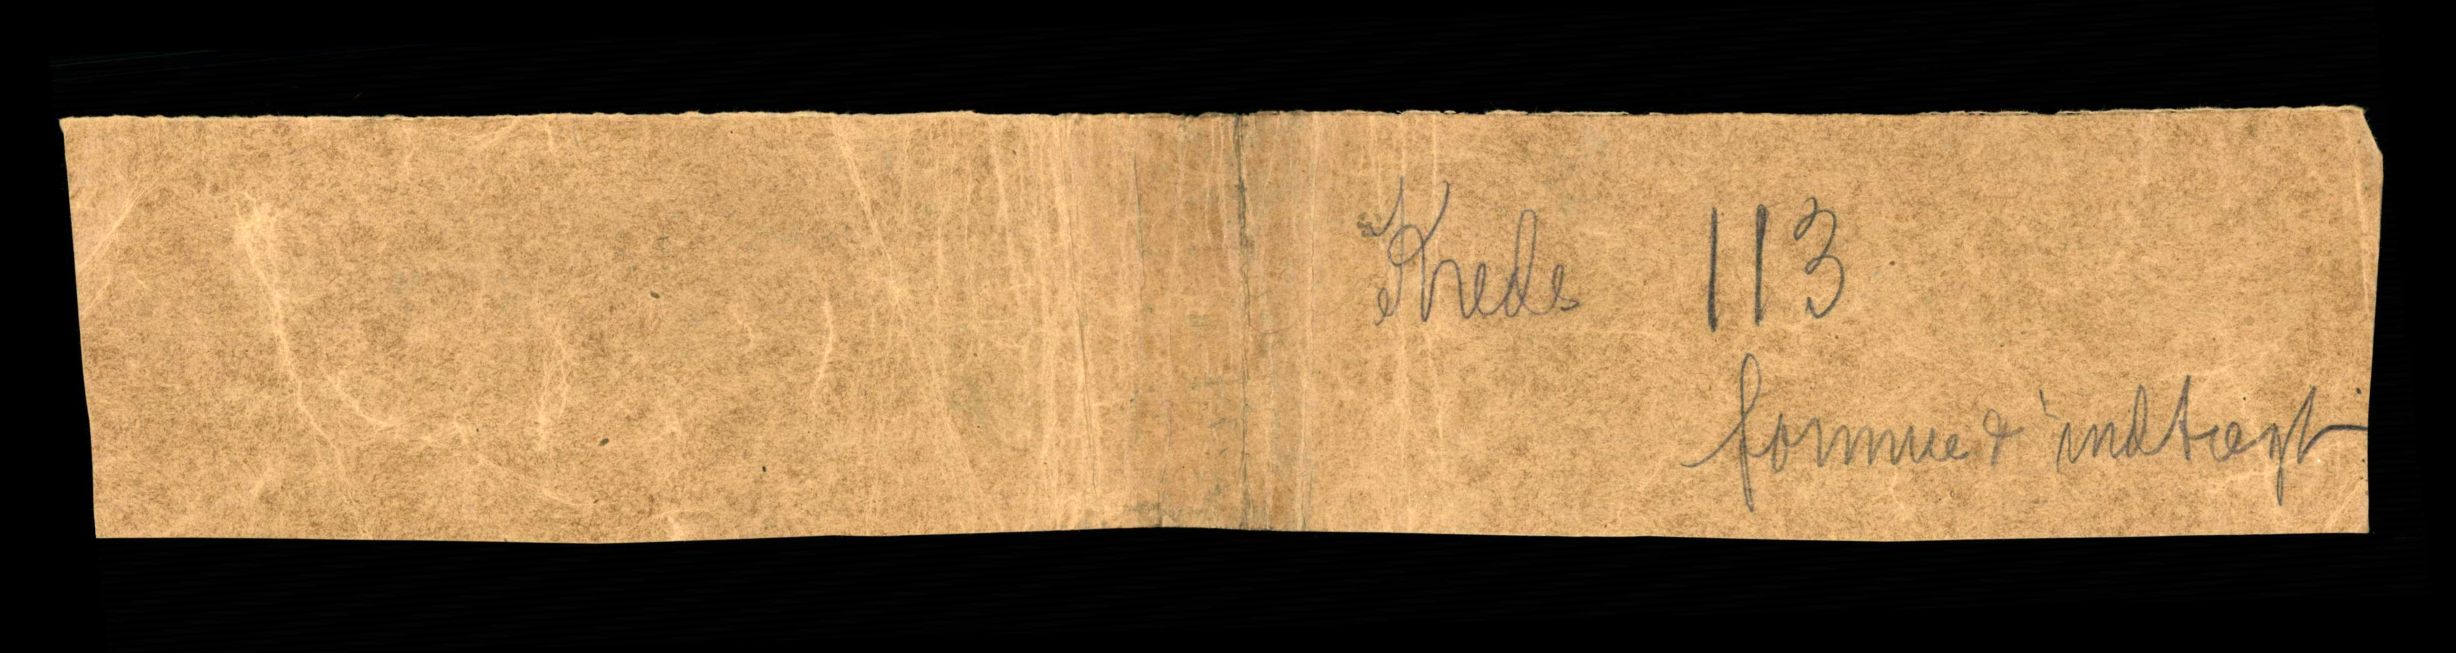 Kreds 113
formue & indtægt